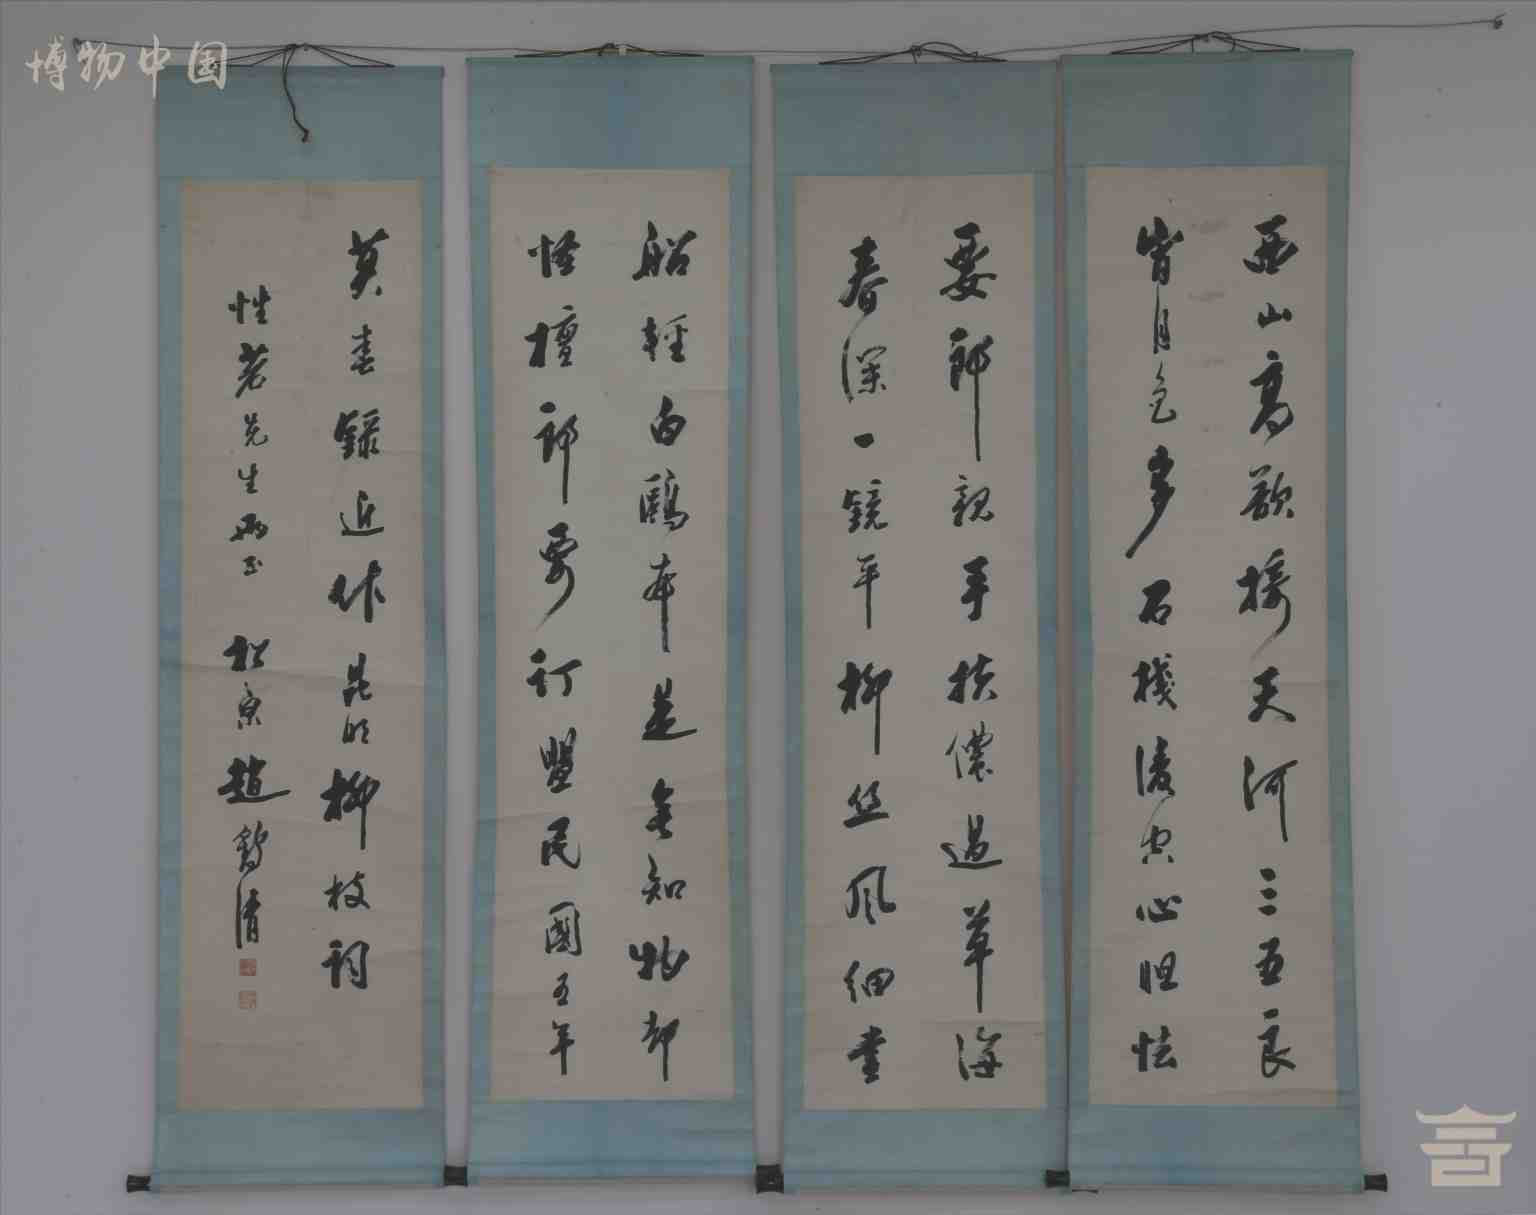 博物中国
西山高欲接天河三五良
宵月色多石栈凌空心胆怯
要郎亲手扶侬过草海
春深一镜平柳丝风细画
船轻白鸥本是无知物却
怪檀郎要订盟民国五年
莫春录近作昆明柳枝词
性老先生两正 松泉赵鹤清